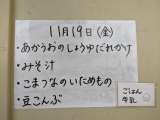 11月19日(金)
・あかうおのしょうゆだれかけ
・みそ汁
・こまつなのいためもの
・豆こんぶ
ごはん
牛乳